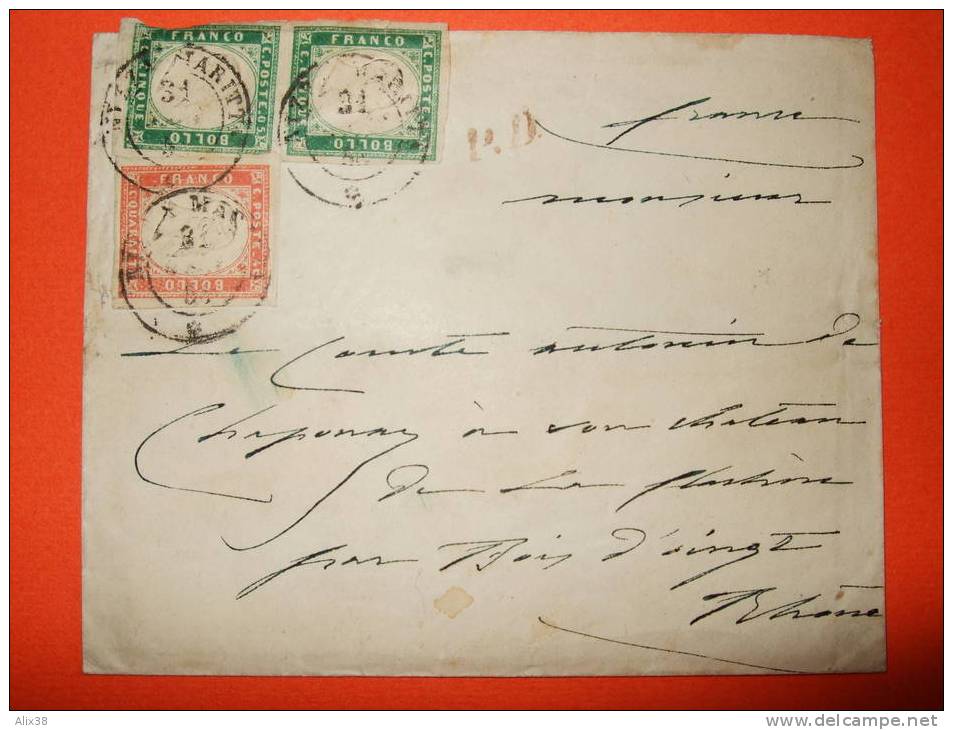 FRANCO
C. POSTE. 05
BOLLO
CINQUE
FRANCO
C. POSTE. 05
BOLLO
FRANCO
C. POSTE. 40
BOLLO
QUARANTA
31
31
31
P.D.
france
monsieur
Le Comte antonin de
Chaponay à son château
de La flachère
par Bois d'oingt
Rhône
Alix38
www.delcampe.net